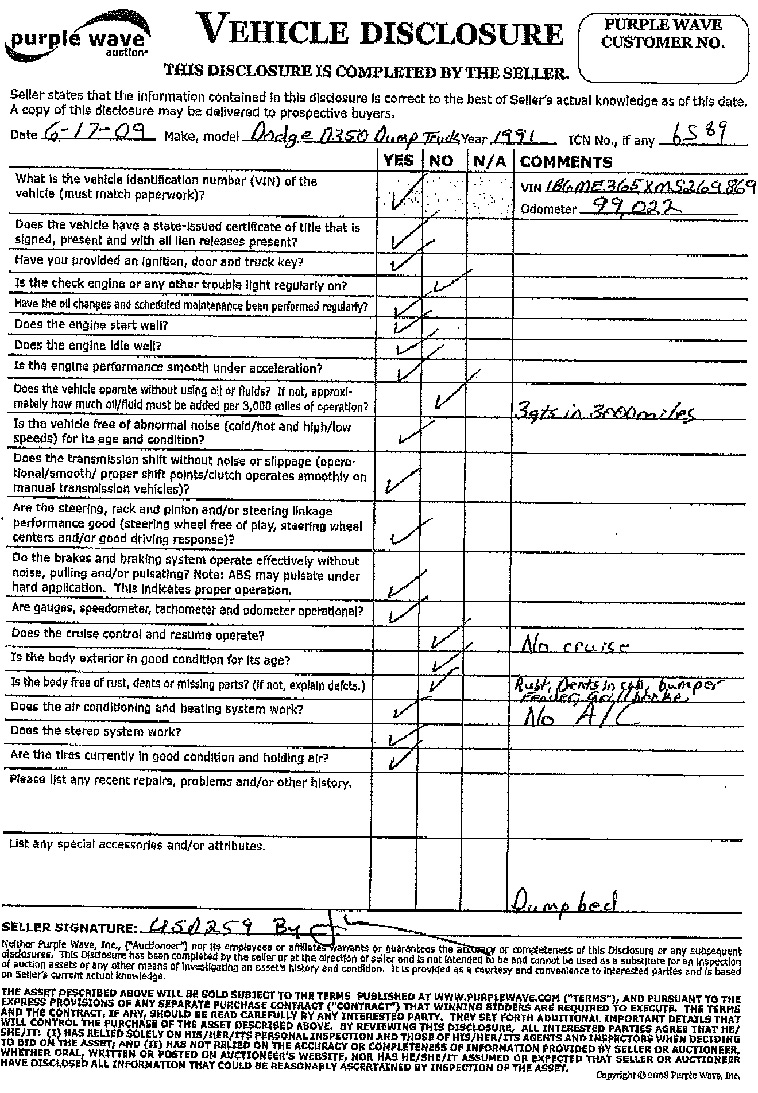 purple wave
auction
VEHICLE DISCLOSURE
THIS DISCLOSURE IS COMPLETED BY THE SELLER.
PURPLE WAVE
CUSTOMER NO.
Seller states that the information contained in this disclosure is correct to the best of Seller's actual knowledge as of this date.
A copy of this disclosure may be delivered to prospective buyers.
Date 6-17-09 Make, model Dodge D350 Dump Truck Year 1991 ICN No., if any 6589
YES NO N/A COMMENTS
What is the vehicle identification number (VIN) of the
vehicle (must match paperwork)?
VIN 1B6ME365XMS269869
Odometer 99,022
Does the vehicle have a state-issued certificate of title that is
signed, present and with all lien releases present?
Have you provided an ignition, door and truck key?
Is the check engine or any other trouble light regularly on?
Have the oil changes and scheduled maintenance been performed regularly?
Does the engine start well?
Does the engine idle well?
Is the engine performance smooth under acceleration?
Does the vehicle operate without using oil or fluids? If not, approxi-
mately how much oil/fluid must be added per 3,000 miles of operation?
3qts in 3000 miles
Is the vehicle free of abnormal noise (cold/hot and high/low
speeds) for its age and condition?
Does the transmission shift without noise or slippage (opera-
tional/smooth/ proper shift points/clutch operates smoothly on
manual transmission vehicles)?
Are the steering, rack and pinion and/or steering linkage
performance good (steering wheel free of play, steering wheel
centers and/or good driving response)?
Do the brakes and braking system operate effectively without
noise, pulling and/or pulsating? Note: ABS may pulsate under
hard application. This indicates proper operation.
Are gauges, speedometer, tachometer and odometer operational?
Does the cruise control and resume operate?
No cruise
Is the body exterior in good condition for its age?
Is the body free of rust, dents or missing parts? (if not, explain defects.)
Rust, Dents in cab, bumper
Fender, Grill broke
Does the air conditioning and heating system work?
No A/C
Does the stereo system work?
Are the tires currently in good condition and holding air?
Please list any recent repairs, problems and/or other history.
List any special accessories and/or attributes.
Dump bed
SELLER SIGNATURE: USD259 By
Neither Purple Wave, Inc., ("Auctioneer") nor its employees or affiliates warrants or guarantees the accuracy or completeness of this Disclosure or any subsequent
disclosures. This Disclosure has been completed by the seller or at the direction of seller and is not intended to be and cannot be used as a substitute for an inspection
of auction assets or any other means of investigating an asset's history and condition. It is provided as a courtesy and convenience to interested parties and is based
on Seller's current actual knowledge.
THE ASSET DESCRIBED ABOVE WILL BE SOLD SUBJECT TO THE TERMS PUBLISHED AT WWW.PURPLEWAVE.COM ("TERMS"), AND PURSUANT TO THE
EXPRESS PROVISIONS OF ANY SEPARATE PURCHASE CONTRACT ("CONTRACT") THAT WINNING BIDDERS ARE REQUIRED TO EXECUTE. THE TERMS
AND THE CONTRACT, IF ANY, SHOULD BE READ CAREFULLY BY ANY INTERESTED PARTY. THEY SET FORTH ADDITIONAL IMPORTANT DETAILS THAT
WILL CONTROL THE PURCHASE OF THE ASSET DESCRIBED ABOVE. BY REVIEWING THIS DISCLOSURE, ALL INTERESTED PARTIES AGREE THAT HE/
SHE/IT: (I) HAS RELIED SOLELY ON HIS/HER/ITS PERSONAL INSPECTION AND THOSE OF HIS/HER/ITS AGENTS AND INSPECTORS WHEN DECIDING
TO BID ON THE ASSET; AND (II) HAS NOT RELIED ON THE ACCURACY OR COMPLETENESS OF INFORMATION PROVIDED BY SELLER OR AUCTIONEER,
WHETHER ORAL, WRITTEN OR POSTED ON AUCTIONEER'S WEBSITE, NOR HAS HE/SHE/IT ASSUMED OR EXPECTED THAT SELLER OR AUCTIONEER
HAVE DISCLOSED ALL INFORMATION THAT COULD BE REASONABLY ASCERTAINED BY INSPECTION OF THE ASSET.
Copyright © 2008 Purple Wave, Inc.